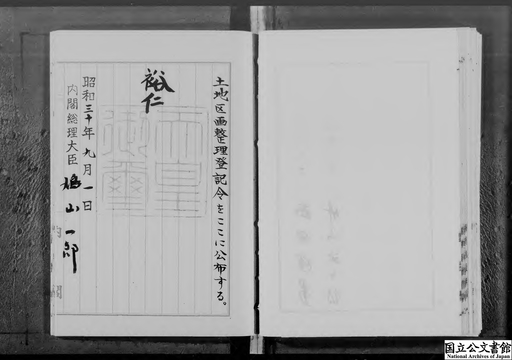 土地区画整理登記令をここに公布する。
裕仁
天皇御璽
昭和三十年九月一日
内閣総理大臣 鳩山一郎
国立公文書館
National Archives of Japan